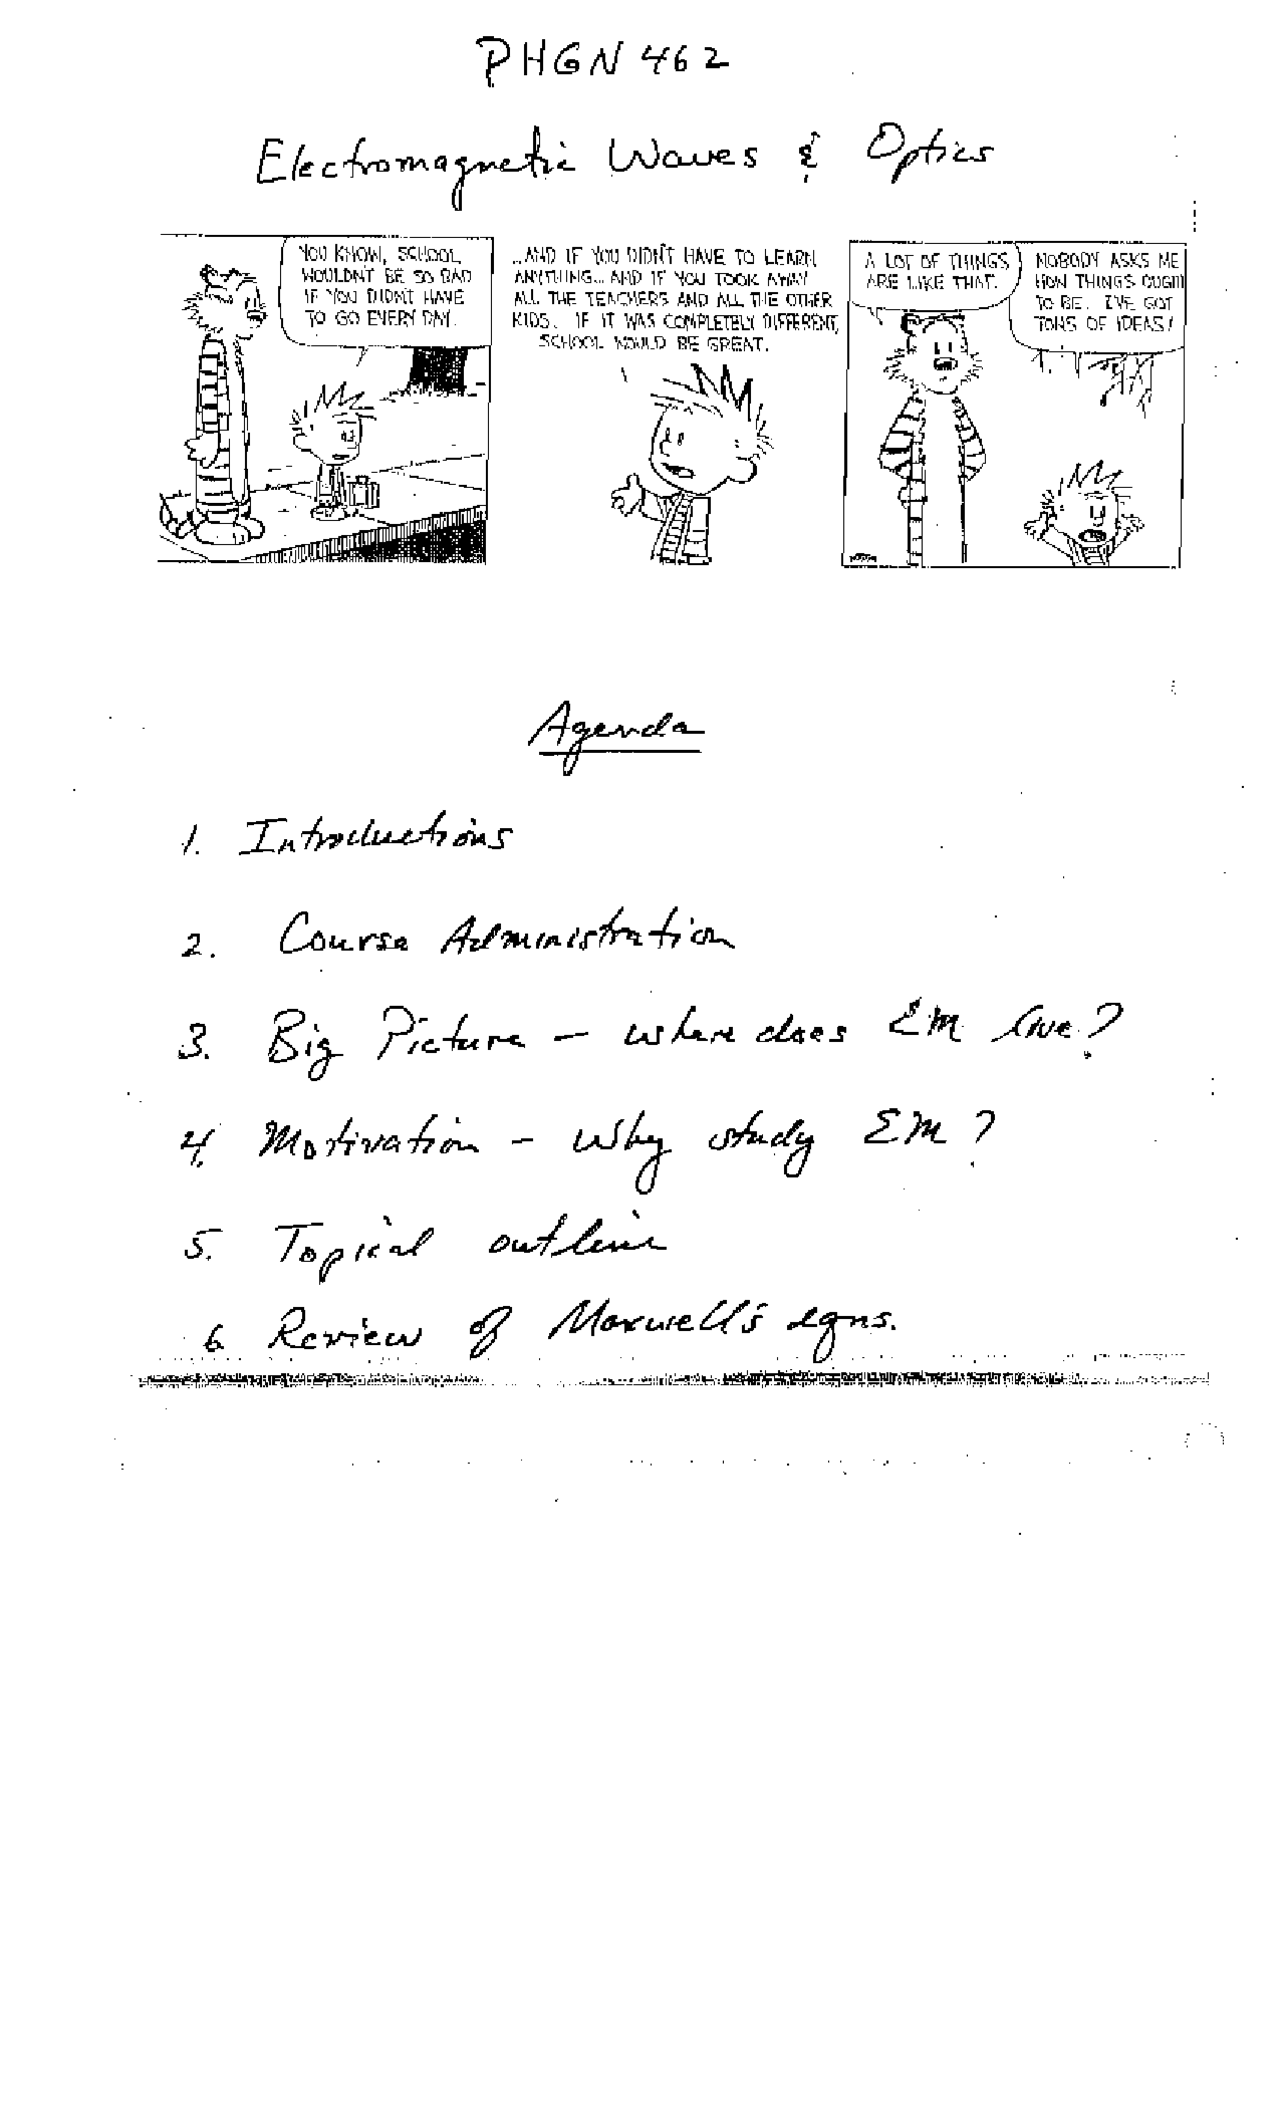 PHGN 462
Electromagnetic Waves & Optics
YOU KNOW, SCHOOL
WOULDN'T BE SO BAD
IF YOU DIDN'T HAVE
TO GO EVERY DAY.
...AND IF YOU DIDN'T HAVE TO LEARN
ANYTHING... AND IF YOU TOOK AWAY
ALL THE TEACHERS AND ALL THE OTHER
KIDS. IF IT WAS COMPLETELY DIFFERENT,
SCHOOL WOULD BE GREAT.
A LOT OF THINGS
ARE LIKE THAT.
NOBODY ASKS ME
HOW THINGS OUGHT
TO BE. I'VE GOT
TONS OF IDEAS!
Agenda
1. Introductions
2. Course Administration
3. Big Picture - where does EM live?
4. Motivation - Why study EM?
5. Topical outline
6 Review of Maxwell's eqns.